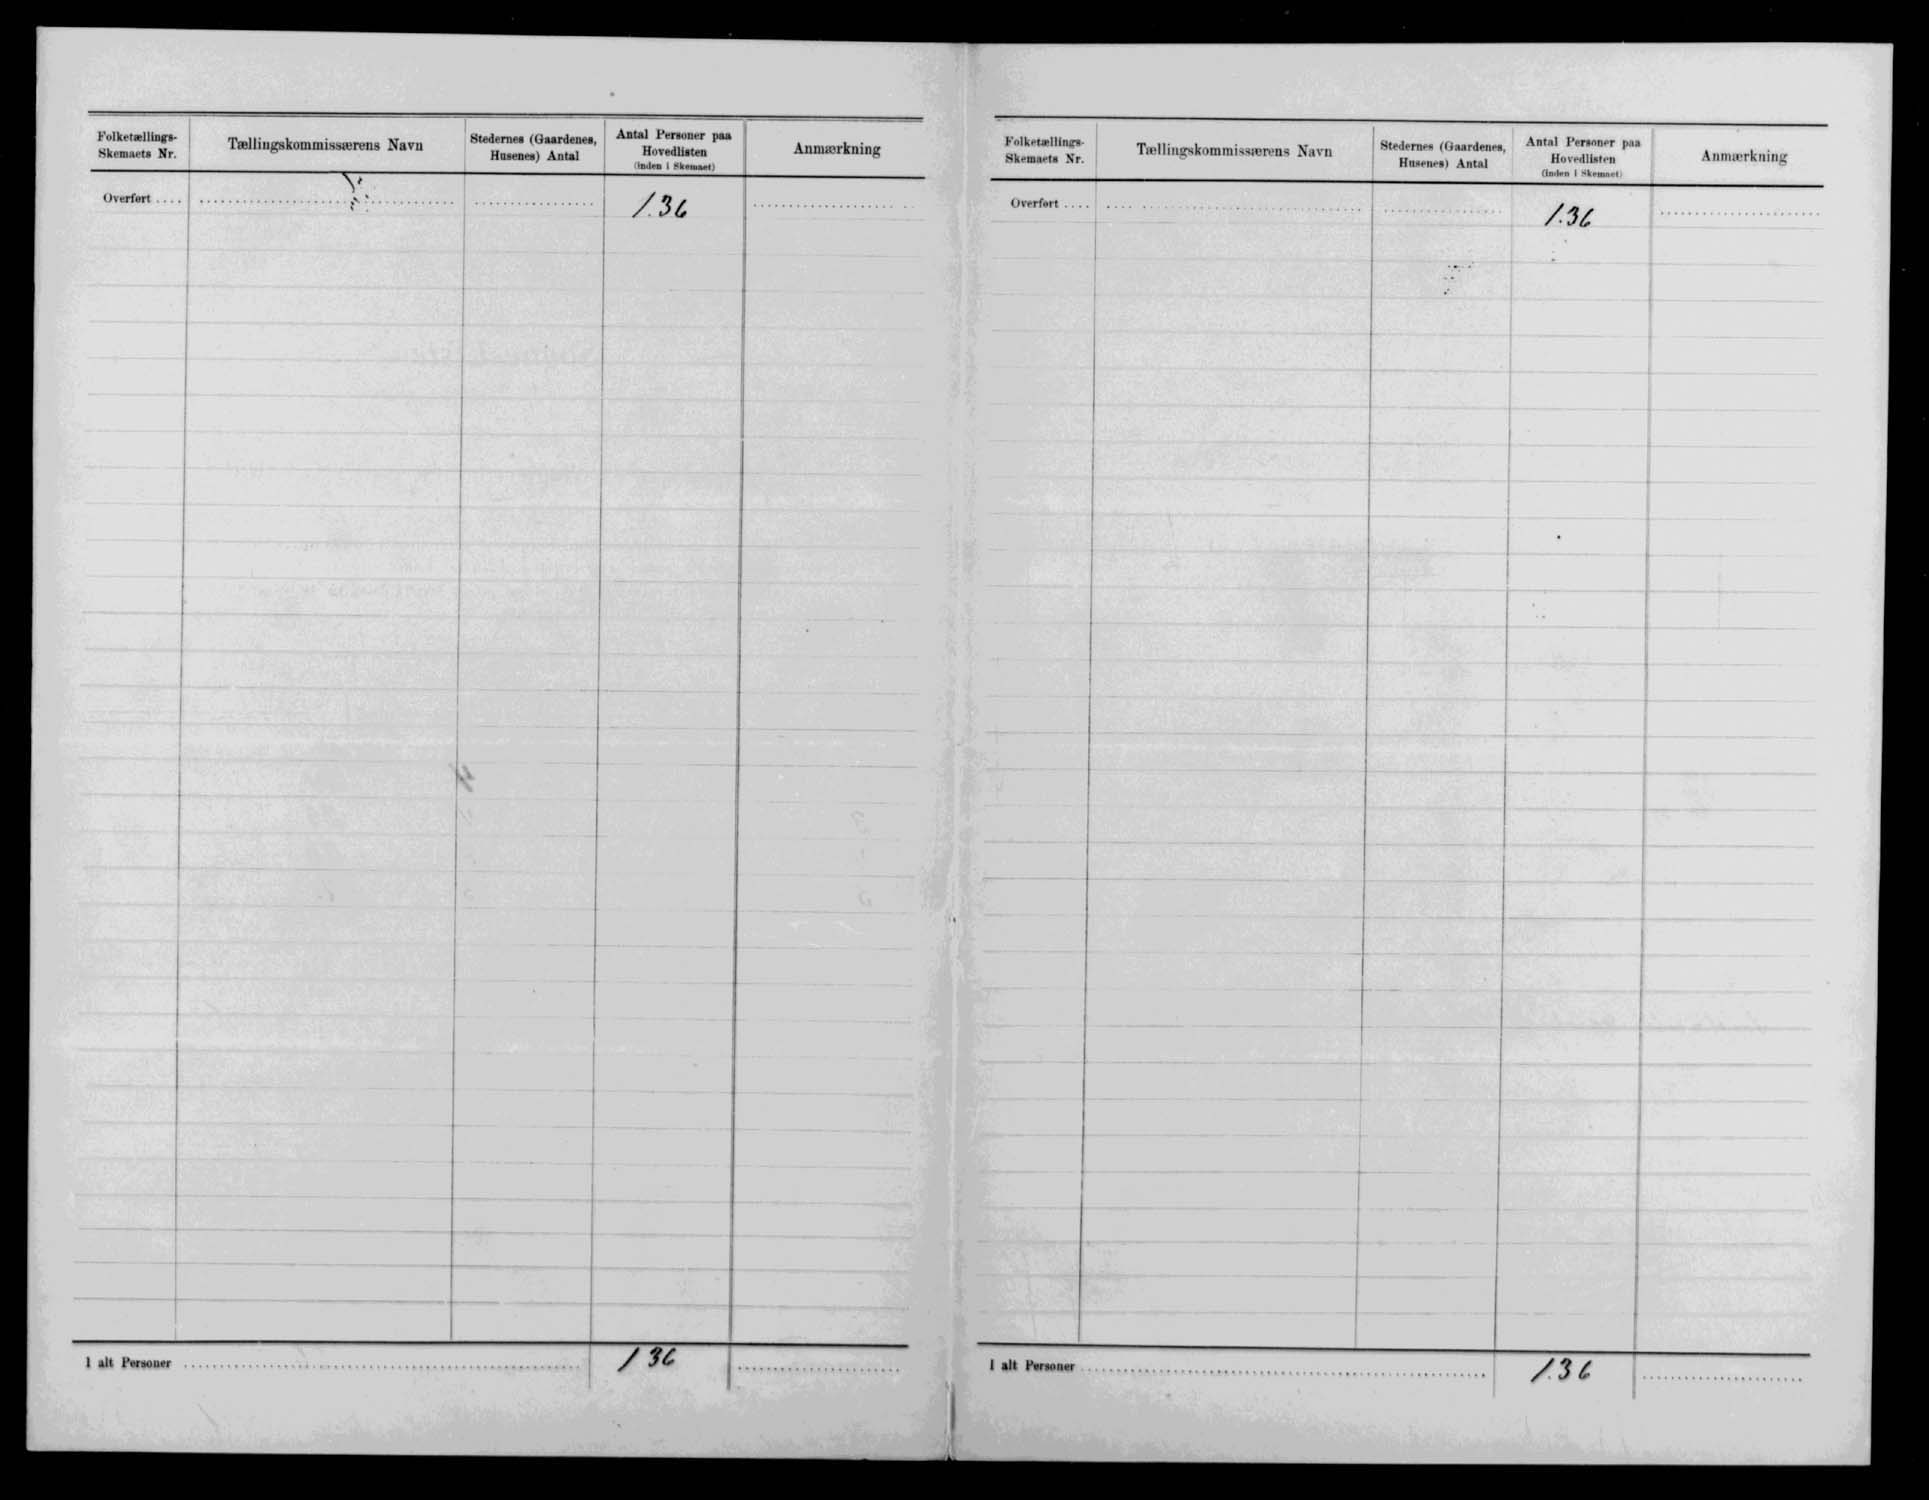 Folketællings-
Skemaets Nr.
Tællingskommissærens Navn
Stedernes (Gaardenes,
Husenes) Antal
Antal Personer paa
Hovedlisten
(inden i Skemaet)
Anmærkning
Overført .... 136
I alt Personer 136
Folketællings-
Skemaets Nr.
Tællingskommissærens Navn
Stedernes (Gaardenes,
Husenes) Antal
Antal Personer paa
Hovedlisten
(inden i Skemaet)
Anmærkning
Overført .... 136
I alt Personer 136